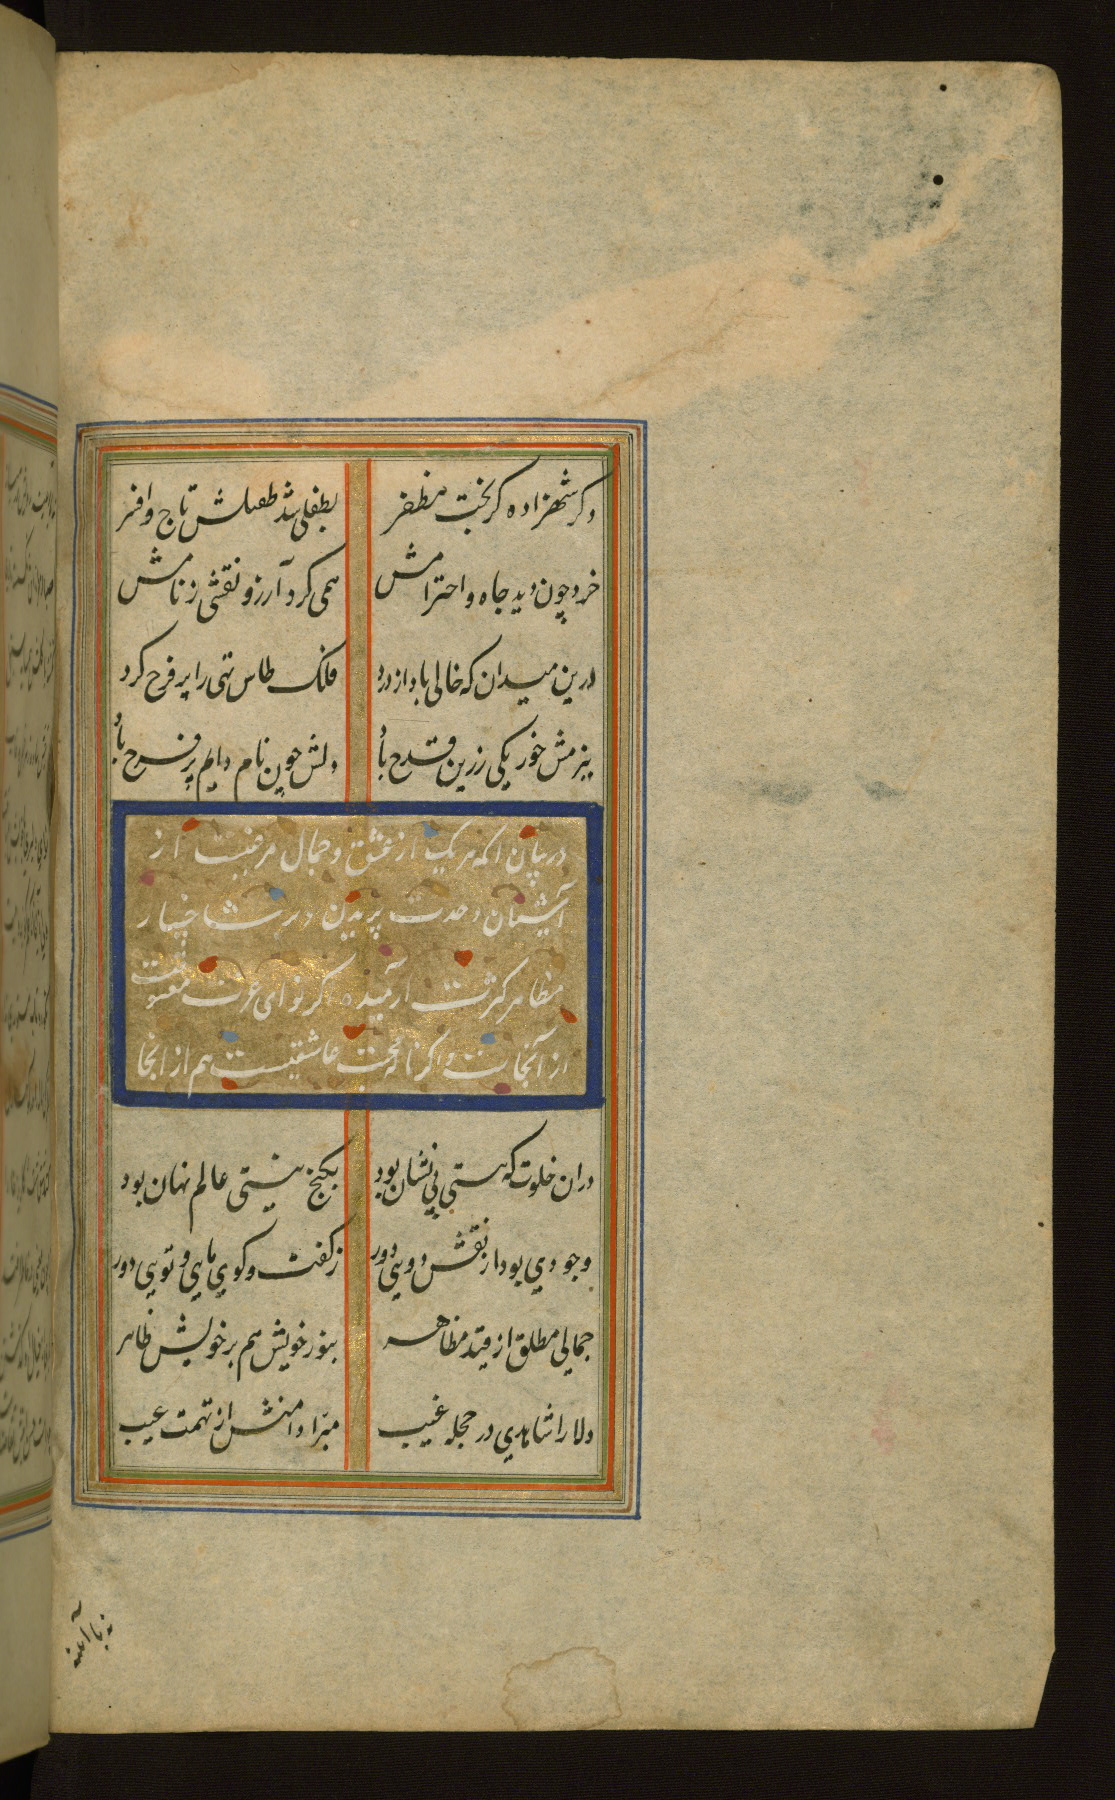 دگر شهزاده کز بخت مظفر
بطفلی شد طفیلش تاج و افسر
خرد چون دید جاه و احترامش
همی کرد آرزو نقشی ز نامش
درین میدان که خالی باد از درد
فلک طاس تهی را پر فرح کرد
ببزمش خور یکی زرین قدح باد
دلش چون نام دایم پر فرح باد
در بیان آنکه هر یک از عشق و جمال مرغیست از
آشیان وحدت پریده و بر شاخسار
مظاهر کثرت آرمیده اگر نوای عزت معشوقیست
از آنجاست و اگر ناله محبت عاشقیست هم از آنجا
دران خلوت که هستی بی نشان بود
بکنج نیستی عالم نهان بود
وجودی بود از نقش دویی دور
ز گفت و کوی مایی و تویی دور
جمالی مطلق از قید مظاهر
بنور خویش هم بر خویش ظاهر
دلارا شاهدی در حجله غیب
مبرا دامنش از تهمت عیب
نه با آینه